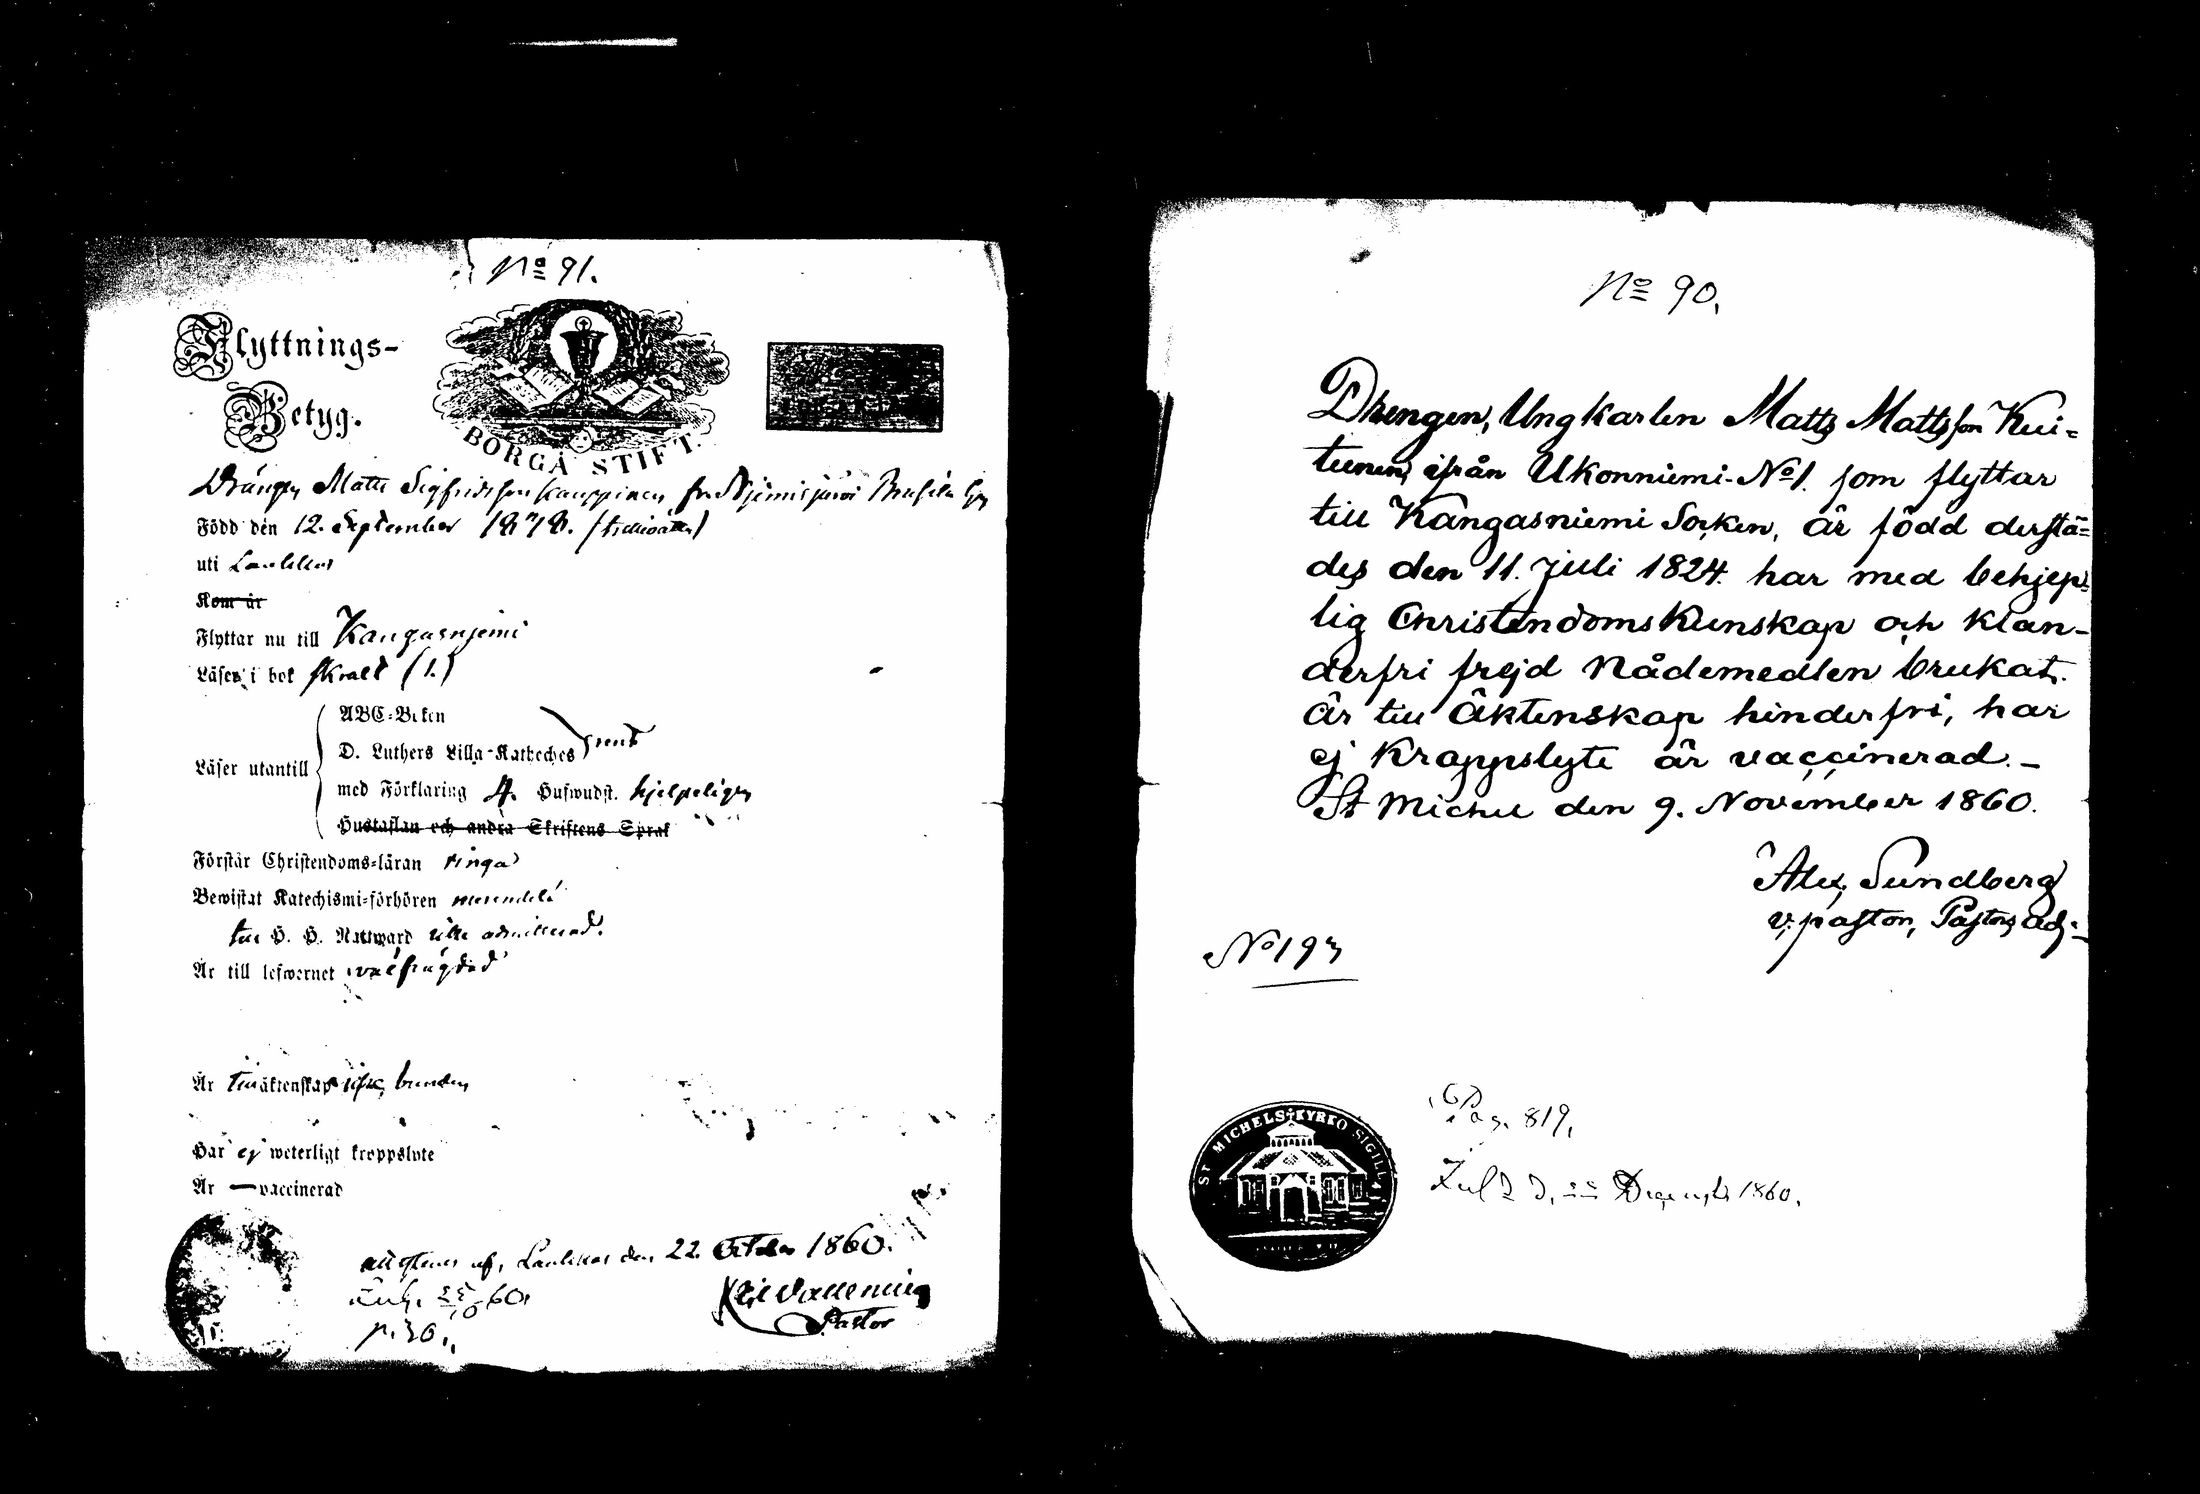 No 91.
Flyttnings-
Betyg.
BORGÅ STIFT.
Drängen Matts Sigfridsson Kauppinen fr. Njemisjärvi
Född den 12. September 1878.
uti Laukkas
Kom år
Flyttar nu till Kangasnjemi
Läser i bok svalt (1.)
ABC-Boken
D. Luthers Lilla-Katheches rent
Läser utantill
med Förklaring 4. Hufwudst. hjelpeligen
Hustaflan och andra Skriftens Språk
Förstår Christendoms-läran ringa
Bewistat Katechismi-förhören merendels
till H. H. Nattward icke admitterad.
Är till lefwernet välfrägdad
Är till äktenskap icke bunden
Har ej weterligt kroppslyte
Är — vaccinerad
attesteras af, Laukkas den 22. October 1860.
Pastor
No 90.
Drengen, Ungkarlen Matts Mattsson Kui=
tunen, ifrån Ukonniemi No 1. som flyttar
till Kangasniemi Socken, är född derstä=
des den 11. Juli 1824. har med behjep=
lig Christendoms Kunskap och klan-
derfri frejd Nådemedlen brukat.
är till Äktenskap hinderfri, har
ej Kroppslyte är vaccinerad. -
St Michel den 9. November 1860.
Alex. Sundberg
v. pastor, Pastors adj:
No 197
ST MICHELS KYRKO SIGILL
Pag. 819.
December 1860.